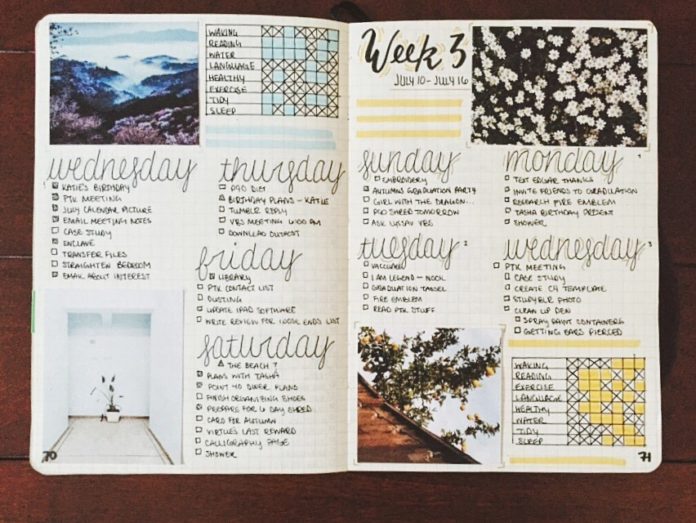 WAKING
READING
WATER
LANGUAGE
HEALTHY
EXERCISE
TIDY
SLEEP
wednesday
KATIE'S BIRTHDAY
PTK MEETING
JULY CALENDAR PICTURE
EMAIL MEETING NOTES
CASE STUDY
ENCLAVE
TRANSFER FILES
STRAIGHTEN BEDROOM
EMAIL ABOUT INTEREST
thursday
P90 DIET
BIRTHDAY PLANS - KATIE
TUMBLR REPLY
VBS MEETING 6:00 AM
DOWNLOAD OUTCAST
friday
LIBRARY
PTK CONTACT LIST
DUSTING
UPDATE IPAD SOFTWARE
WRITE REVIEW FOR LOOSE ENDS LIST
saturday
THE BEACH 7
PLANS WITH TASHA
POINT 40 DINER PLANS
FINISH ORGANIZING SHOES
PREPARE FOR 6 DAY SHRED
CARD FOR AUTUMN
VIRTUE'S LAST REWARD
CALLIGRAPHY PAGE
SHOWER
70
Week 3
JULY 10 - JULY 16
sunday
EMBROIDERY
AUTUMNS GRADUATION PARTY
GIRL WITH THE DRAGON...
P90 SHRED TOMORROW
ASK VBS
monday 1
TEXT EDGAR THANKS
INVITE FRIENDS TO GRADUATION
RESEARCH FIRE EMBLEM
TASHA BIRTHDAY PRESENT
SHOWER
tuesday 2
VACCUUM
I AM LEGEND - NOOK
GRADUATION TASSEL
FIRE EMBLEM
READ PTK STUFF
wednesday 3
PTK MEETING
CASE STUDY
CREATE C4 TEMPLATE
STUDYBLR PHOTO
CLEAN UP DEN
SPRAY PAINT CONTAINERS
GETTING EARS PIERCED
WAKING
READING
EXERCISE
LANGUAGE
HEALTHY
WATER
TIDY
SLEEP
71